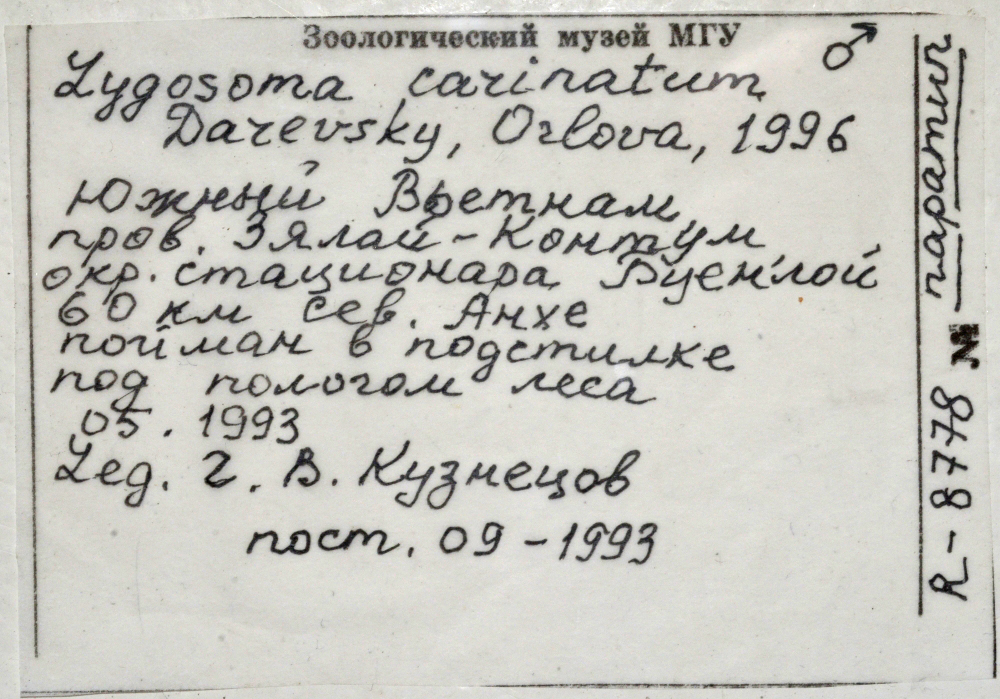 Зоологический музей МГУ
♂
Lygosoma carinatum
Darevsky, Orlova, 1996
Южный Вьетнам,
пров. Зялай-Контум
окр. стационара Буенлой
60 км сев. Анхе
пойман в подстилке
под пологом леса
05. 1993
Leg. Г. В. Кузнецов
пост. 09-1993
R-8778 № паратип